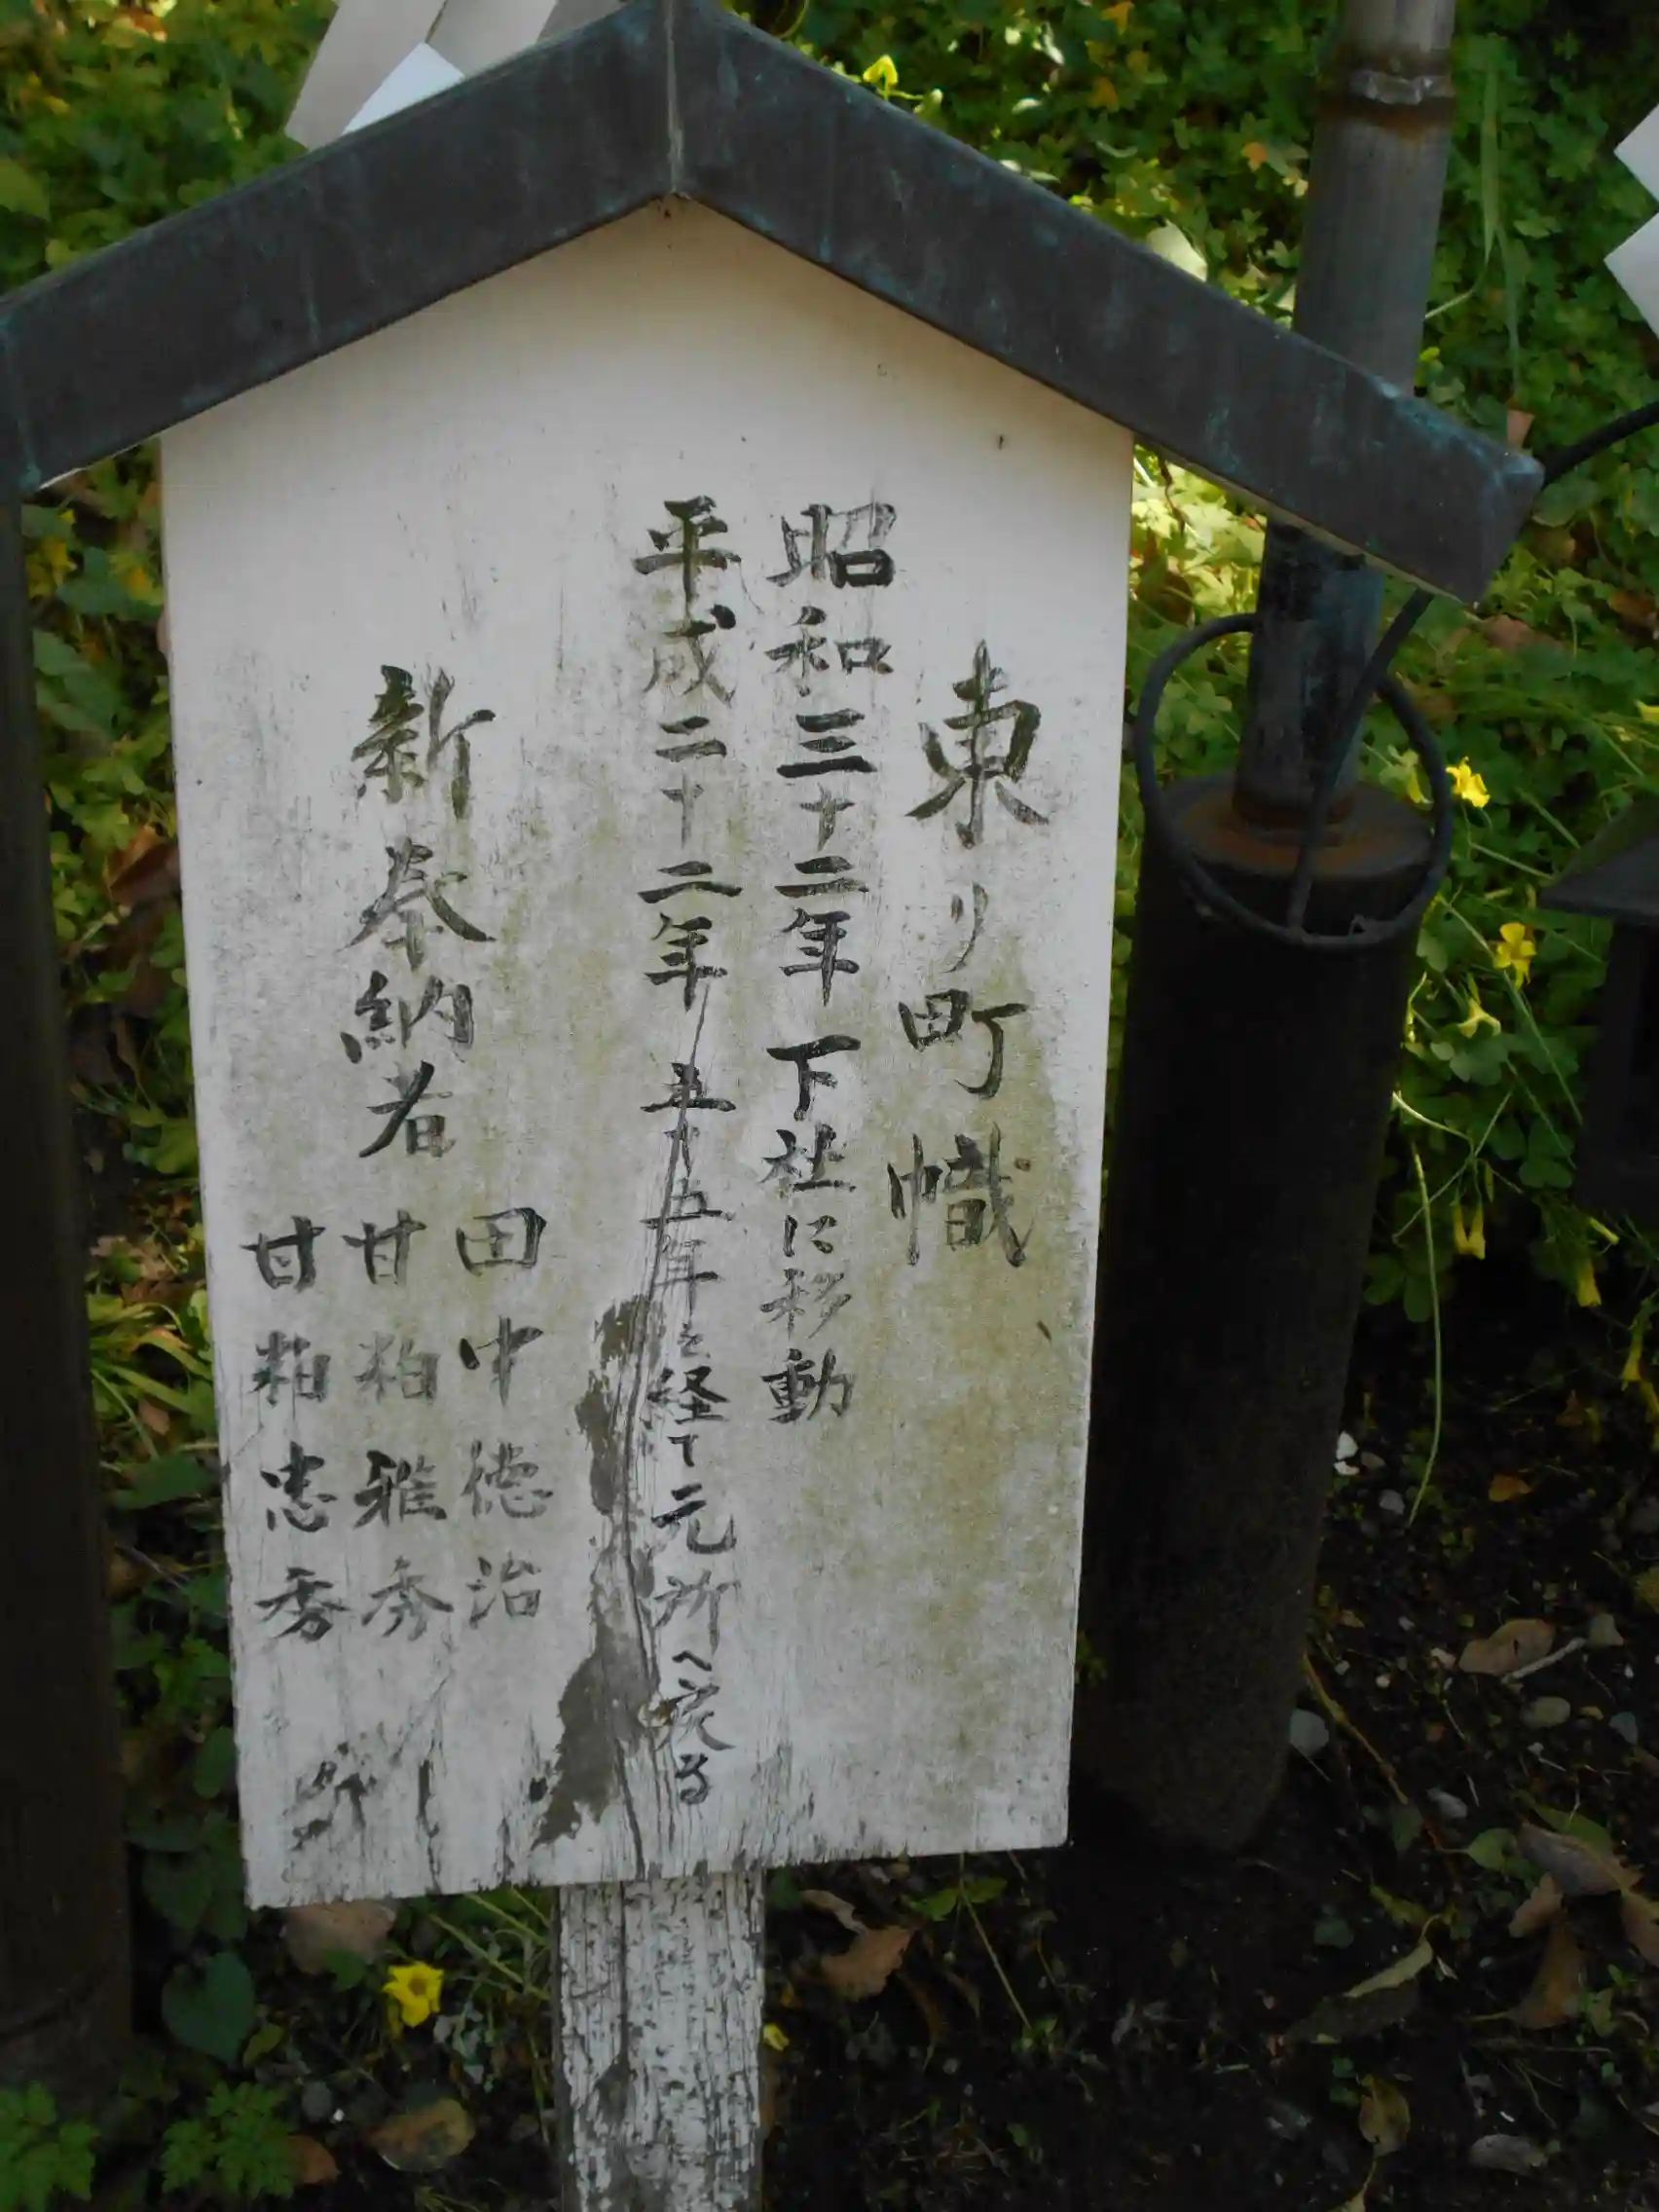 東リ町幟
昭和三十二年 下社に移動
平成二十二年 五十五年を経て元所へ戻る
新奉納者
田中徳治
甘粕雅秀
甘粕忠秀